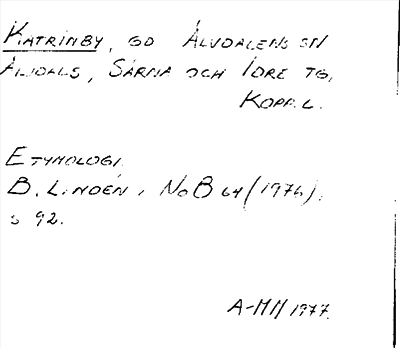 KATRINBY, GD ÄLVDALENS SN
ÄLVDALS, SÄRNA OCH IDRE TG,
KOPP. L.
ETYMOLOGI.
B. LINDÉN i NoB 64 (1976),
s 92.
A-MH 1977.